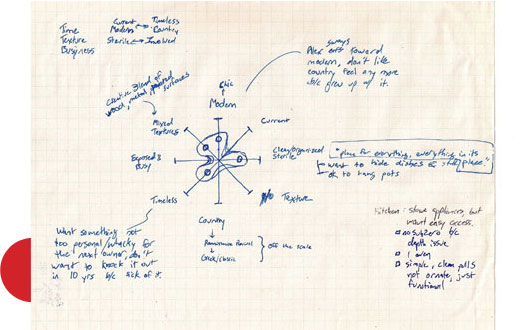 Time
Texture
Busyness
Current Modern ↔ Timeless Country
Sterile ↔ Involved
Alex sways toward
modern, don't like
country feel any more
b/c grew up w/ it.
Creative Blend of
wood, metal, surfaces
Chic
Modern
Mixed
Textures
Current
Clean/Organized
Sterile
Exposed &
Busy
Timeless
No Texture
Country
Off the scale
"place for everything, everything in its
place"
want to hide dishes &
ok to hang pots
Want something not
too personal/wacky for
the next owner, don't
want to knock it out
in 10 yrs b/c sick of it.
Kitchen: stowe appliances, but
want easy access.
no subzero b/c
depth issue
1 oven
simple, clean pulls
not ornate, just
functional